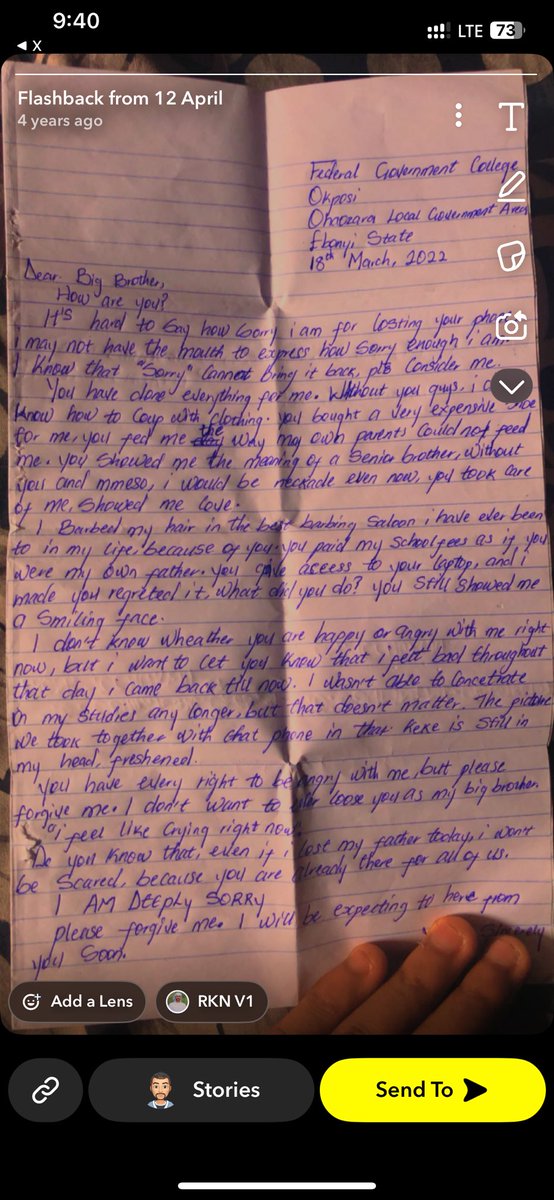 9:40
LTE 73
◀ X
Flashback from 12 April
4 years ago
T
Federal Government College
Okposi
Ohaozara Local Government Area
Ebonyi State
18th March, 2022
Dear Big Brother,
How are you?
It's hard to say how sorry i am for losting your phone
i may not have the mouth to express how sorry enough i am
I know that "Sorry" cannot bring it back, pls consider me.
You have done everything for me. Without you guys, i
know how to coup with clothing. you bought a very expensive shoe
for me, you fed me the day why my own parents could not feed
me. you showed me the meaning of a senior brother, without
you and mmeso, i would be neckade even now, you took care
of me, showed me love.
I Barbed my hair in the best barbing saloon i have ever been
to in my life, because of you. you paid my school fees as if you
were my own father. you gave access to your laptop, and i
made you regreted it. what did you do? you still showed me
a smiling face.
I don't know wheather you are happy or angry with me right
now, but i want to let you know that i felt bad throughout
that day i came back till now. I wasn't able to concetrate
on my studies any longer, but that doesn't matter. The picture
we took together with that phone in that keke is still in
my head, freshened.
you have every right to be angry with me, but please
forgive me. I don't want to loose you as my big brother.
"i feel like crying right now."
Do you know that, even if i lost my father today, i won't
be scared, because you are already there for all of us.
I AM DEEPLY SORRY
please forgive me. I will be expecting to here from
you soon.
Sincerely
Add a Lens
RKN V1
Stories
Send To